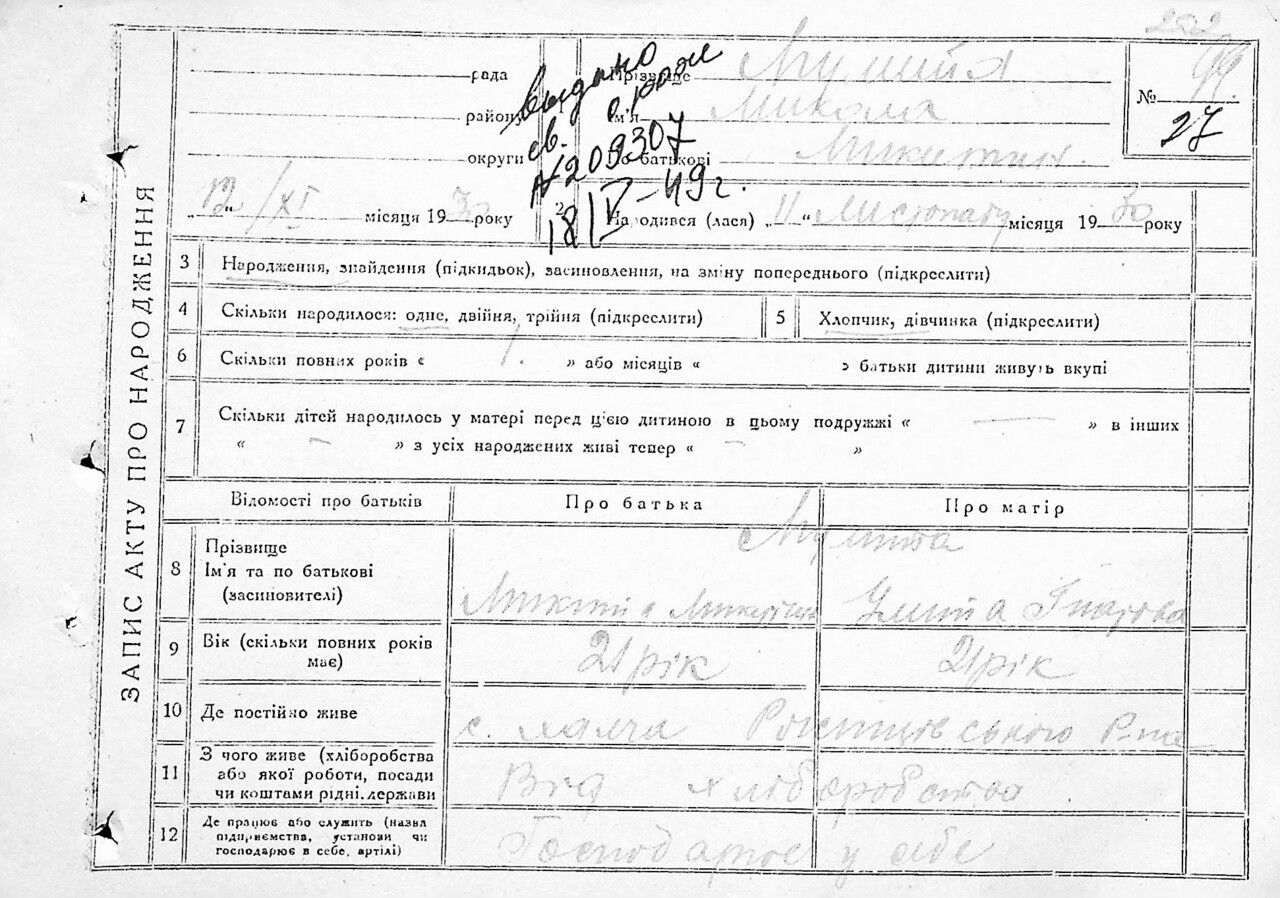 ЗАПИС АКТУ ПРО НАРОДЖЕННЯ
рада
району
округи
видано
св. о рожд
№ 209307
18/V-49 г.
Прізвище
Ім'я Микола
По батькові Микитич.
№ 99.
27
12/XI місяця 1930 року
2 Народився (лася) „11“ Листопаду місяця 1930 року
3 Народження, знайдення (підкидьок), засиновлення, на зміну попереднього (підкреслити)
4 Скільки народилося: одне, двійня, трійня (підкреслити)
5 Хлопчик, дівчинка (підкреслити)
6 Скільки повних років « 1. » або місяців « » батьки дитини живуть вкупі
7 Скільки дітей народилось у матері перед цією дитиною в цьому подружжі « — » в інших
« — » з усіх народжених живі тепер « — »
Відомості про батьків Про батька Про матір
8 Прізвище
Ім'я та по батькові
(засиновителі)
Микита Улита
9 Вік (скільки повних років
має)
21 рік 21 рік
10 Де постійно живе
с.
11 З чого живе (хліборобства
або якої роботи, посади
чи коштами рідні, держави
Від хліборобства
12 Де працює або служить (назва
підприємства, установи чи
господарює в себе, артілі)
Господарює у себе